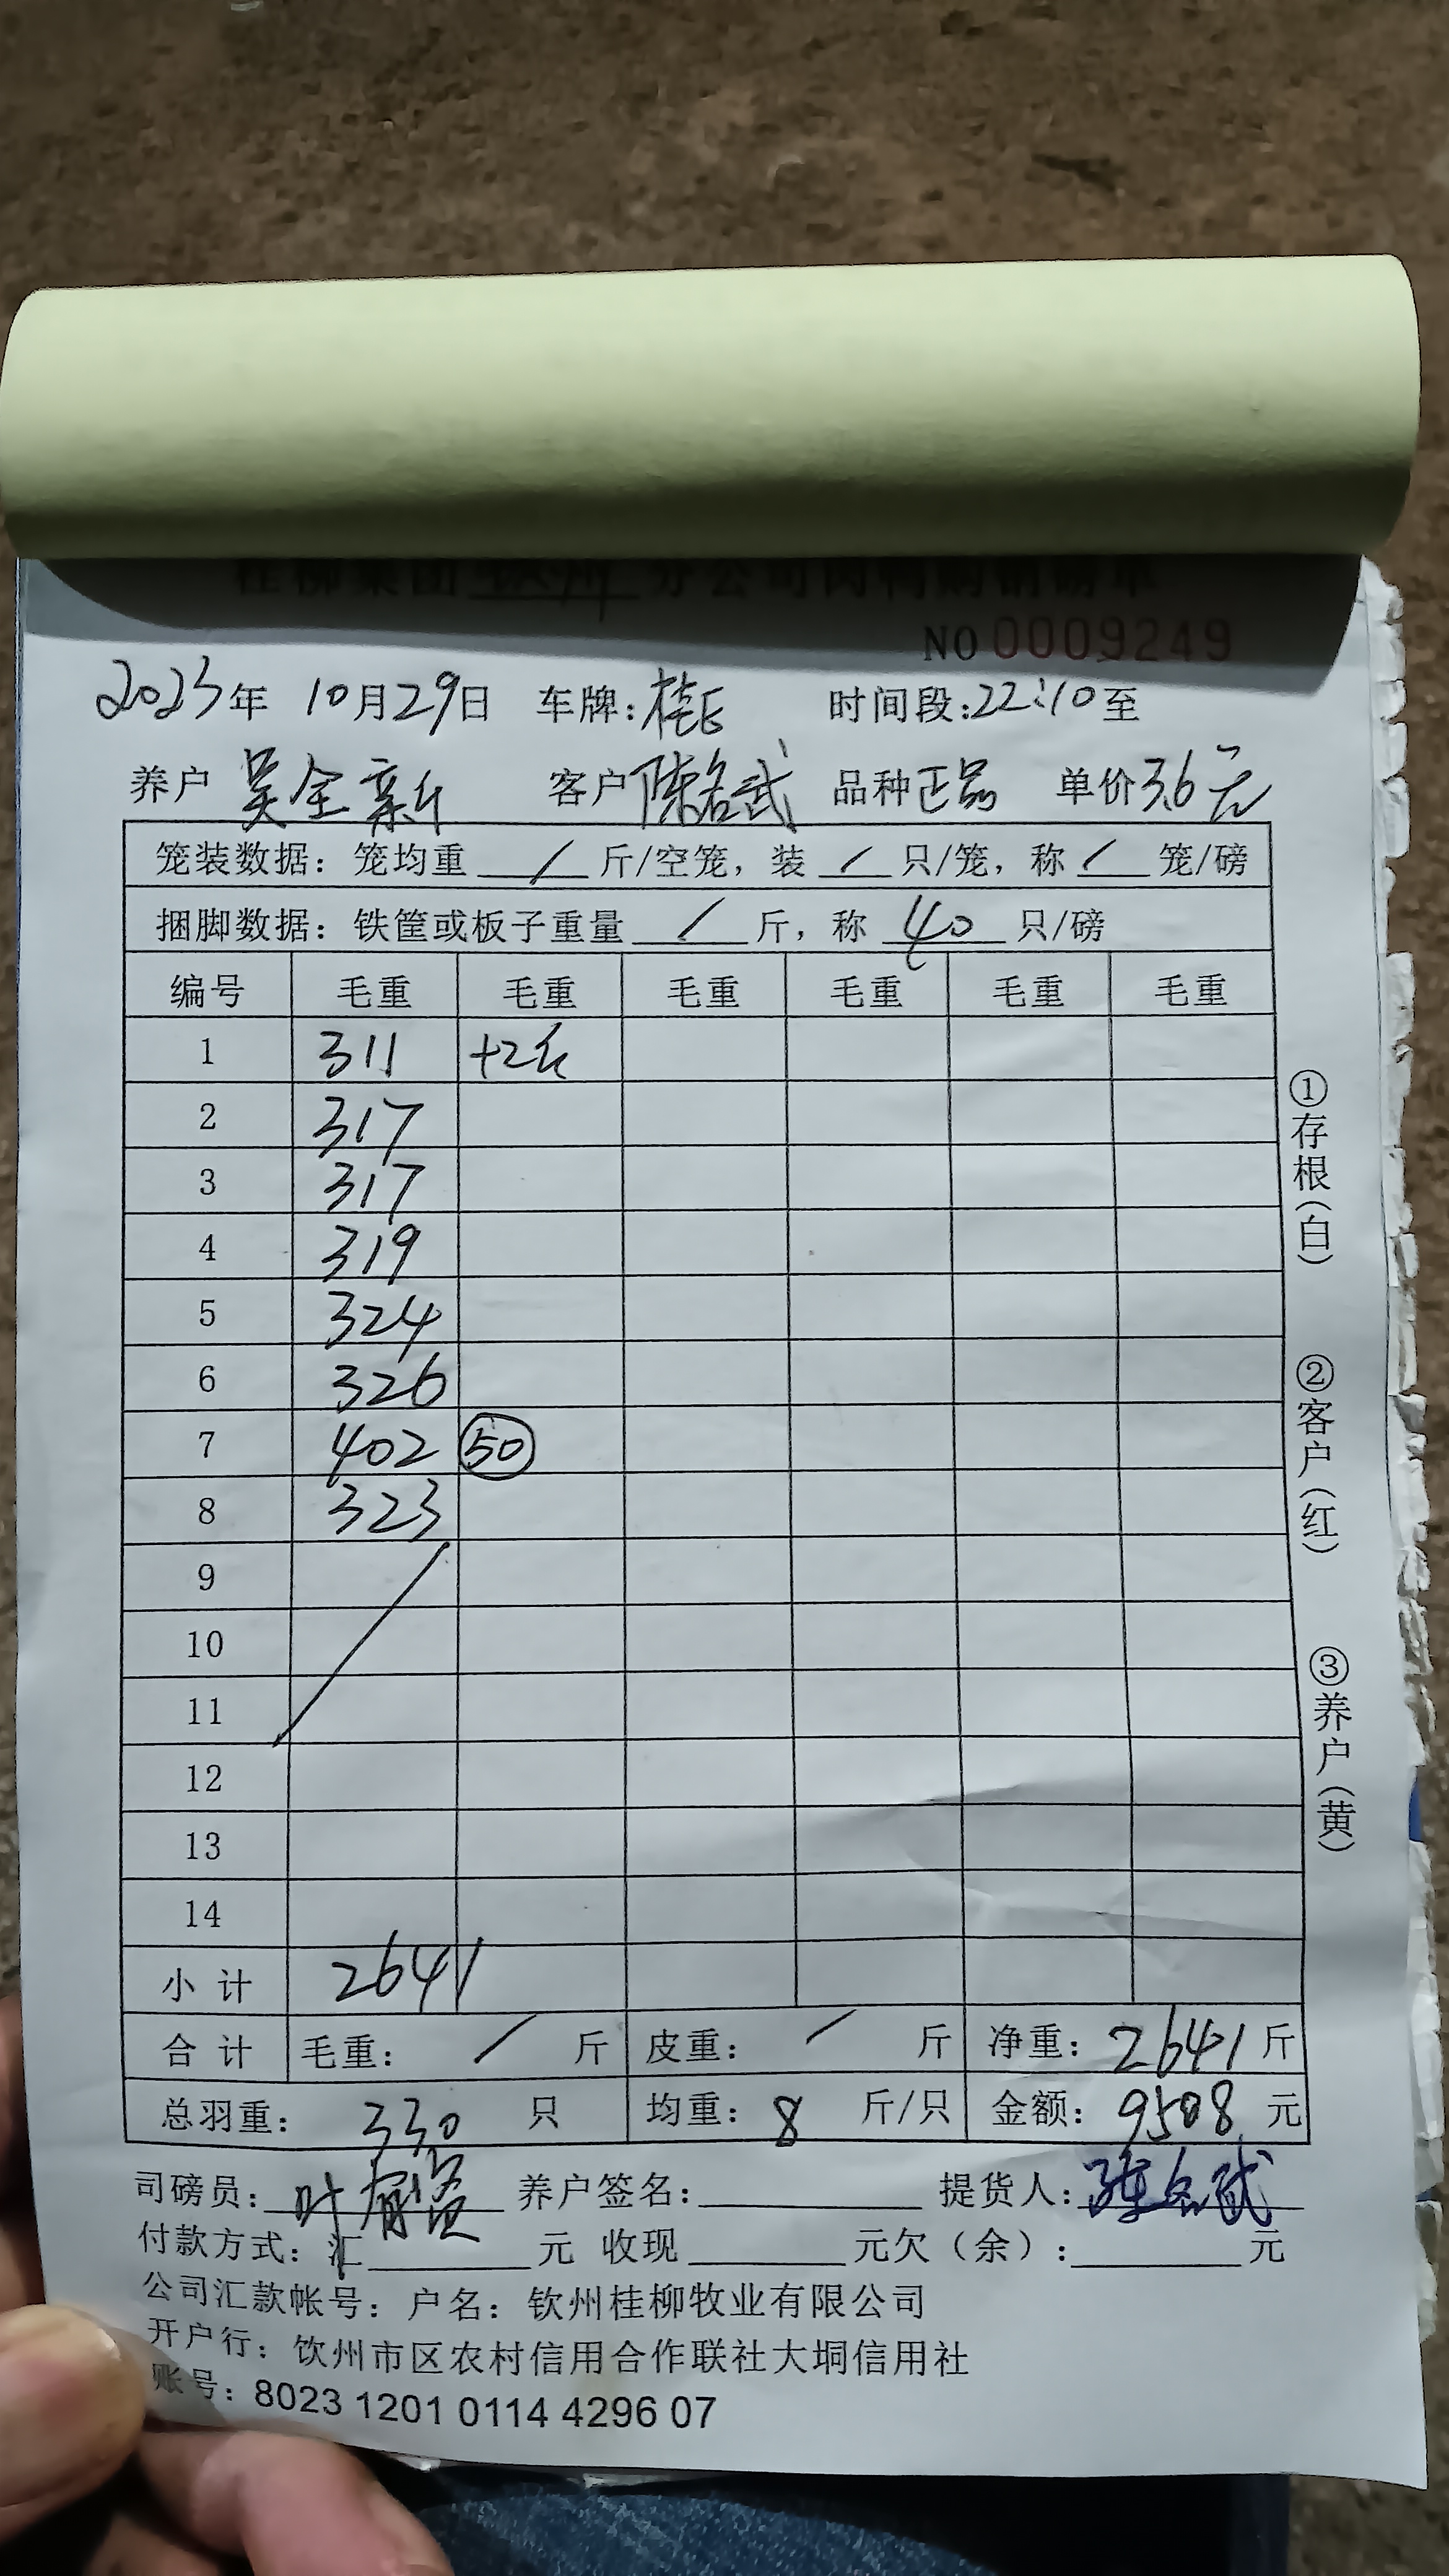 桂柳集团 钦州 分公司肉鸭购销磅单
NO 0009249
2023年 10月29日 车牌:桂E 时间段:22:10至
养户 吴全新 客户 陈名武 品种 正品 单价 3.6元
笼装数据: 笼均重 / 斤/空笼, 装 / 只/笼, 称 / 笼/磅
捆脚数据: 铁筐或板子重量 / 斤, 称 40 只/磅
编号 毛重 毛重 毛重 毛重 毛重 毛重
1 311 +2
2 317
3 317
4 319
5 324
6 326
7 402 50
8 323
9
10
11
12
13
14
小计 2641
合计 毛重: / 斤 皮重: / 斤 净重: 2641 斤
总羽重: 330 只 均重: 8 斤/只 金额: 9508 元
司磅员: 叶 养户签名: 提货人: 陈名武
付款方式: 汇 元 收现 元欠(余): 元
公司汇款帐号: 户名: 钦州桂柳牧业有限公司
开户行: 钦州市区农村信用合作联社大垌信用社
账号: 8023 1201 0114 4296 07
①存根(白)
②客户(红)
③养户(黄)